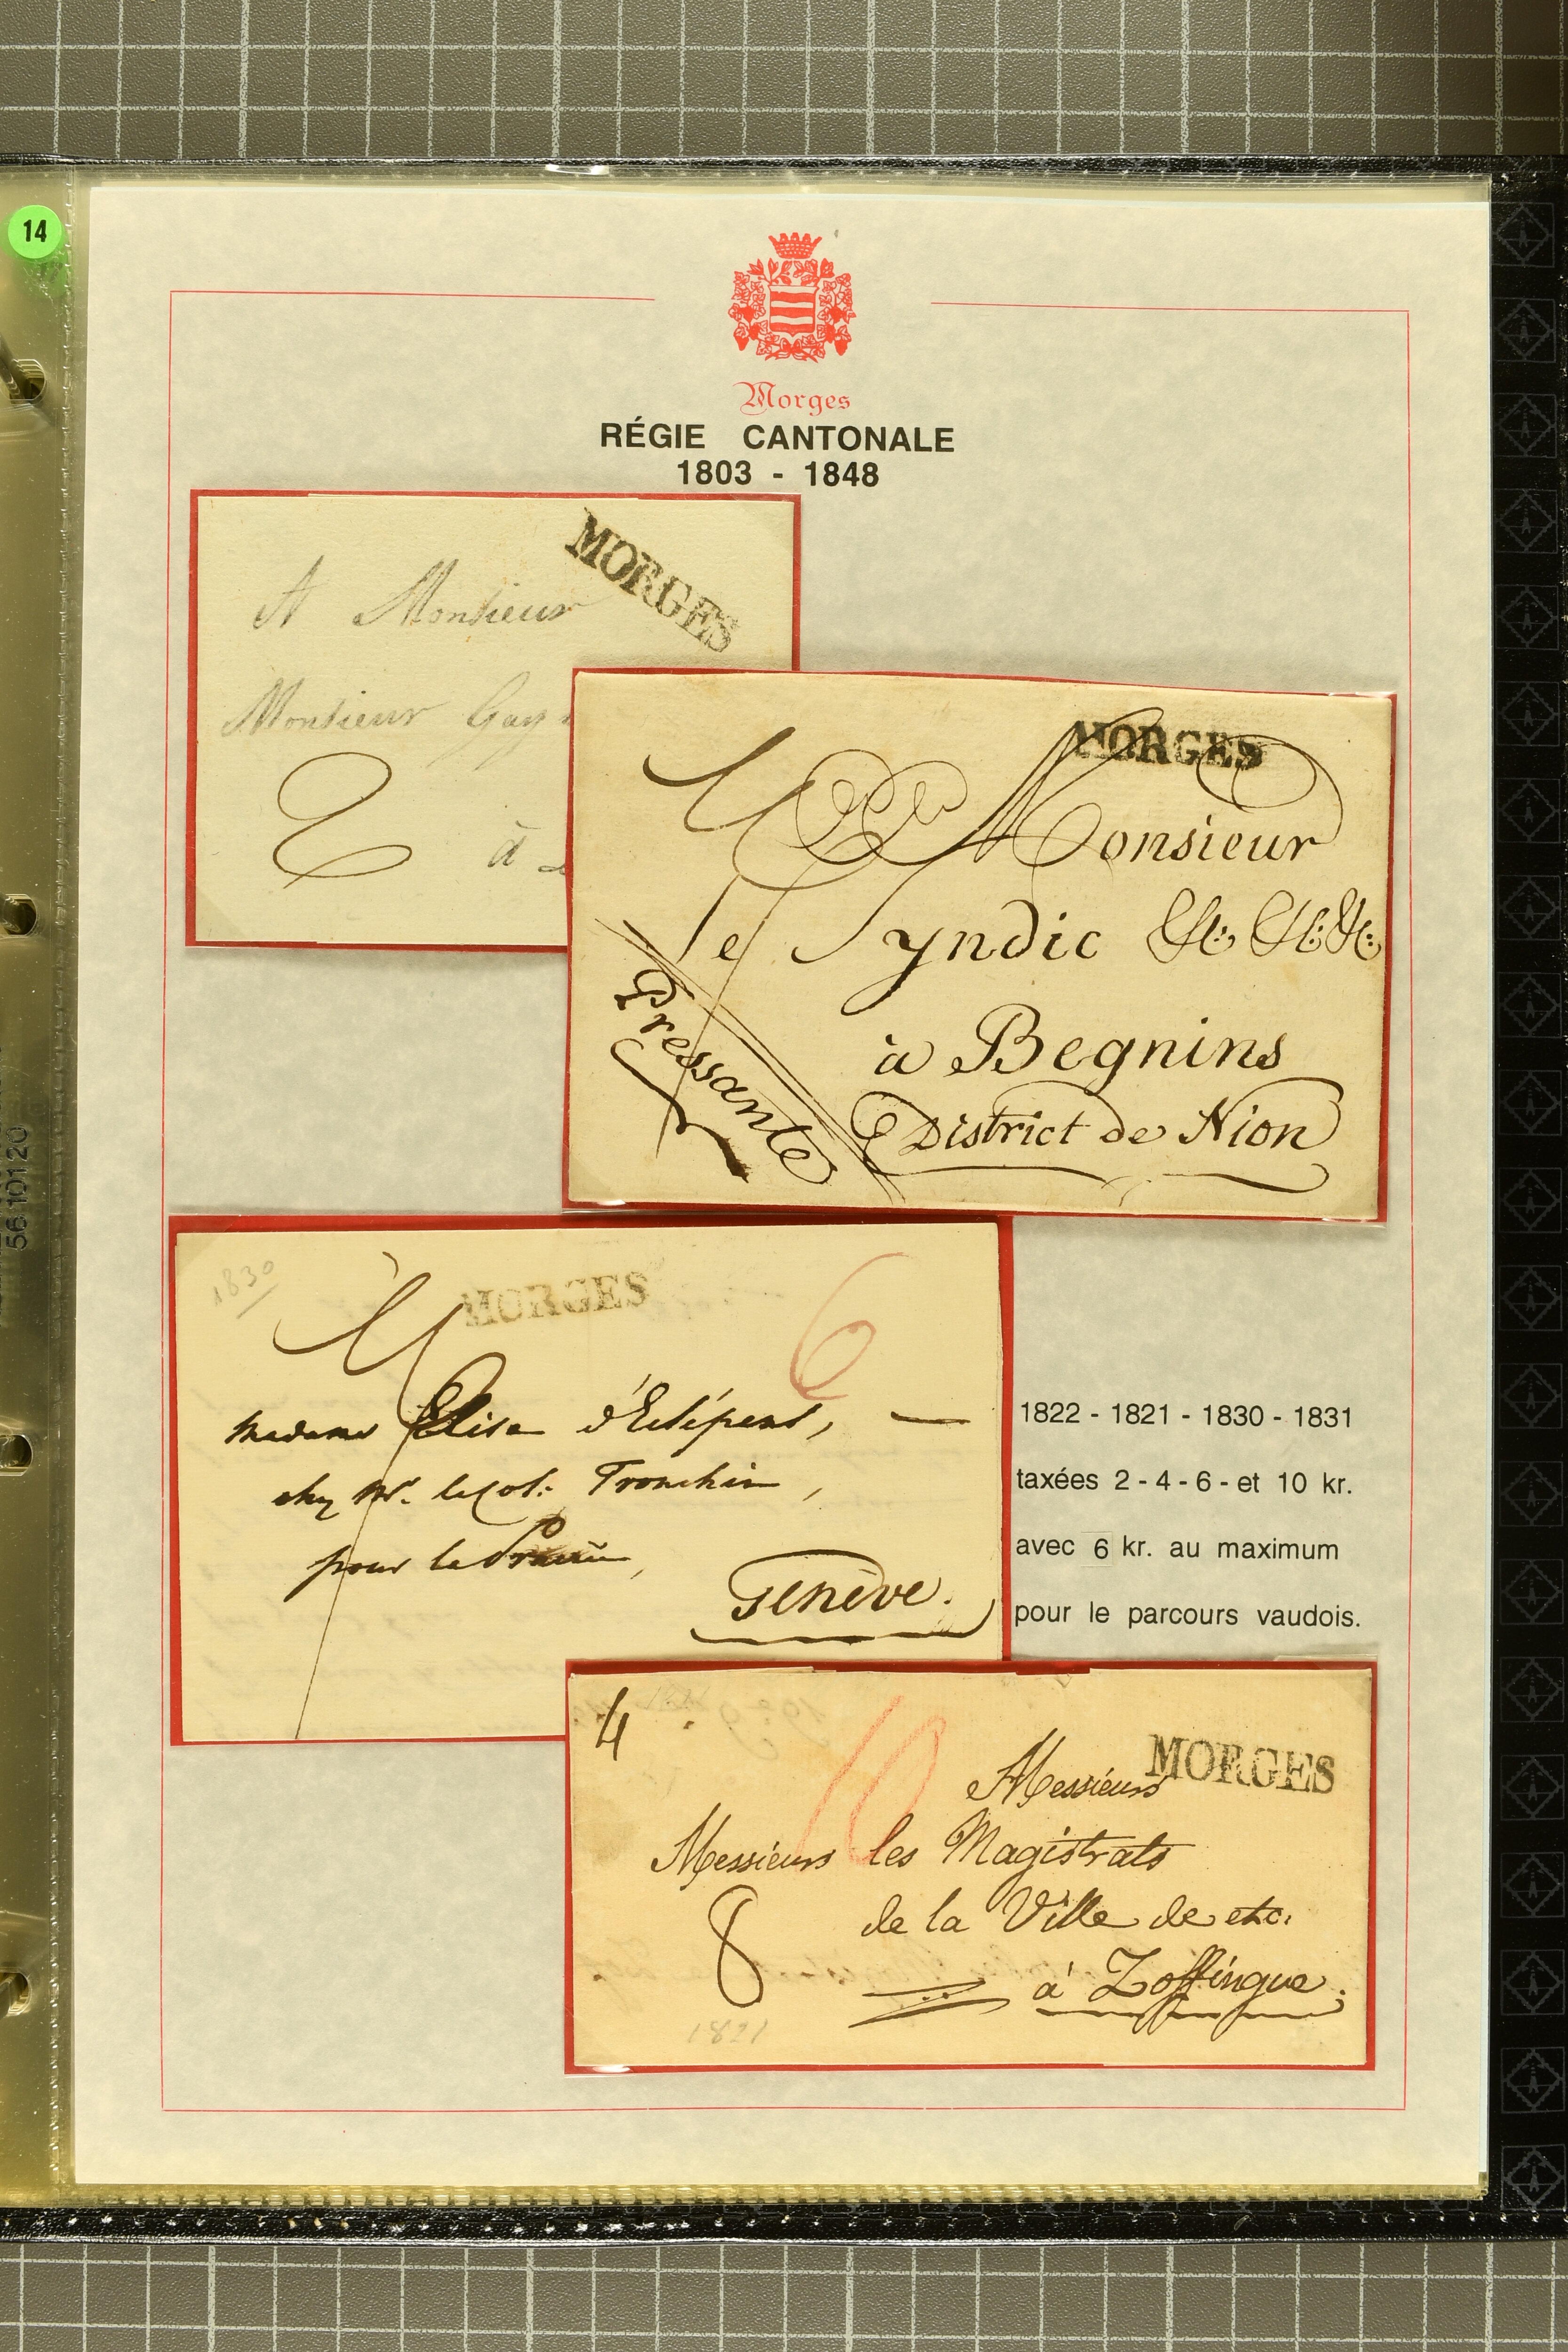 14
Morges
RÉGIE CANTONALE
1803 - 1848
MORGES
A Monsieur
Monsieur Gay
à
MORGES
A Monsieur
le Syndic
à Begnins
District de Nion
Pressante
1830
MORGES
6
A
Madame Elise d'Estépent,
chez Mr. le Col: Tronchin,
pour
Genève.
1822 - 1821 - 1830 - 1831
taxées 2 - 4 - 6 - et 10 kr.
avec 6 kr. au maximum
pour le parcours vaudois.
4
10
MORGES
Messieurs
Messieurs les Magistrats
de la Ville de etc.
8
à Zoffingue.
1821
56 101 20